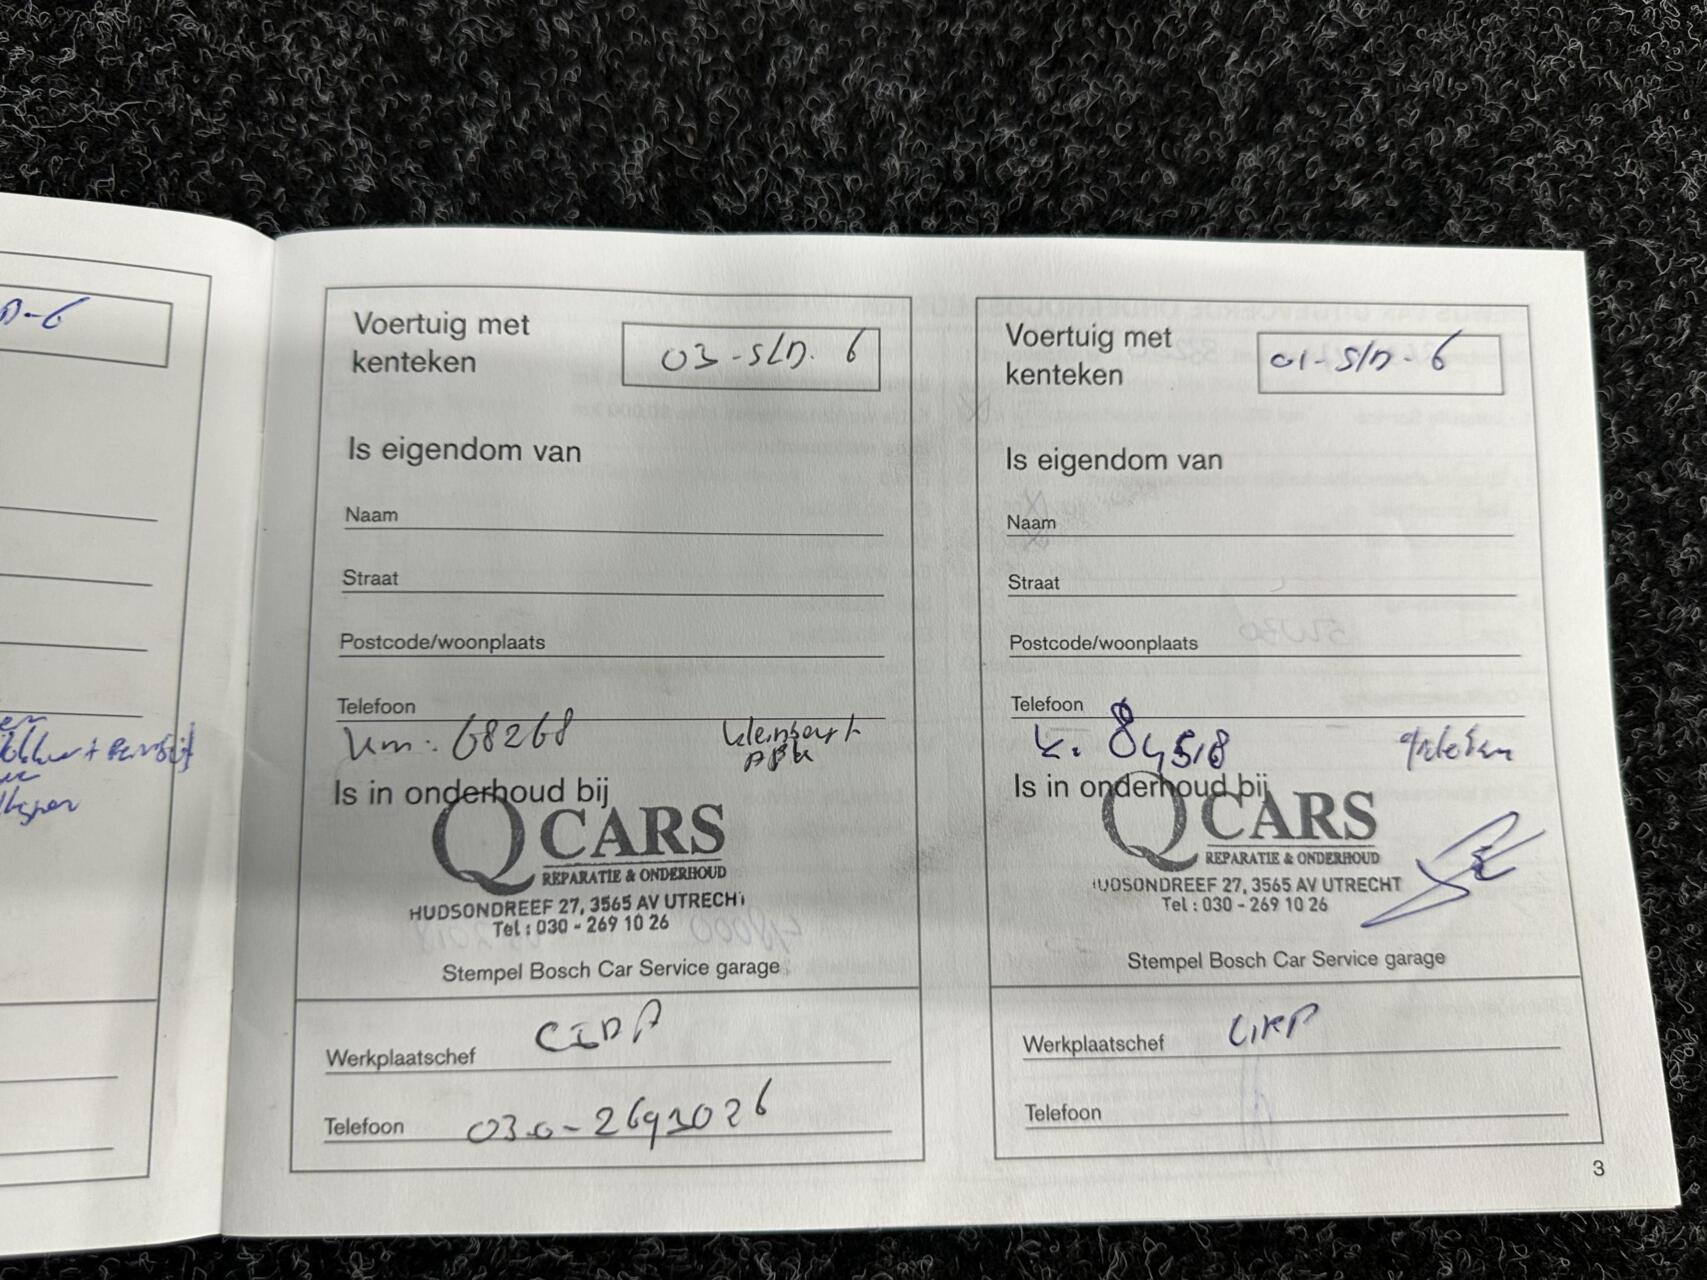 D-6
Voertuig met
kenteken
03-SLD. 6
Is eigendom van
Naam
Straat
Postcode/woonplaats
Telefoon
km: 68268
kleinbeurt
APK
Is in onderhoud bij
Q CARS
REPARATIE & ONDERHOUD
HUDSONDREEF 27, 3565 AV UTRECHT
Tel : 030 - 269 10 26
Stempel Bosch Car Service garage
Werkplaatschef
Telefoon 030-2691026
Voertuig met
kenteken
01-SLD-6
Is eigendom van
Naam
Straat
Postcode/woonplaats
Telefoon
k. 84518
Is in onderhoud bij
Q CARS
REPARATIE & ONDERHOUD
HUDSONDREEF 27, 3565 AV UTRECHT
Tel : 030 - 269 10 26
Stempel Bosch Car Service garage
Werkplaatschef
Telefoon
3